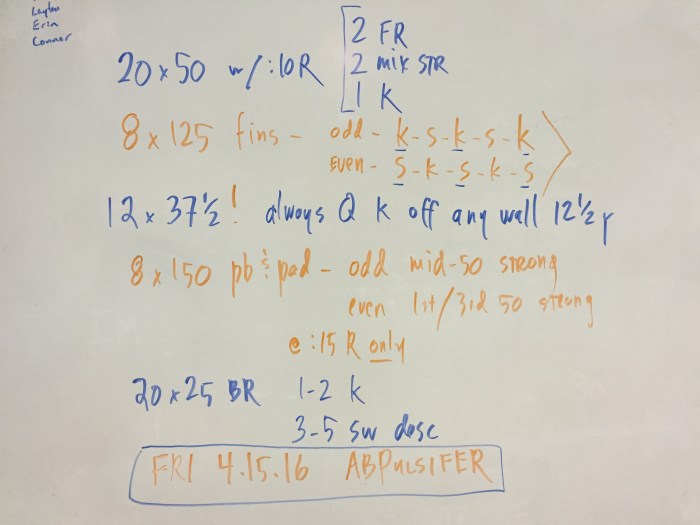 Layton
Erin
Connor
20 x 50 w/ :10R [2 FR
2 mix STR
1 K
8 x 125 fins - odd - K-S-K-S-K
EVEN - S-K-S-K-S
12 x 37½! always Q K off any wall 12½y
8 x 150 pb & pad - odd mid-50 strong
even 1st/3rd 50 strong
@ :15 R only
20 x 25 BR 1-2 K
3-5 sw desc
FRI 4.15.16 ABPulsIFER